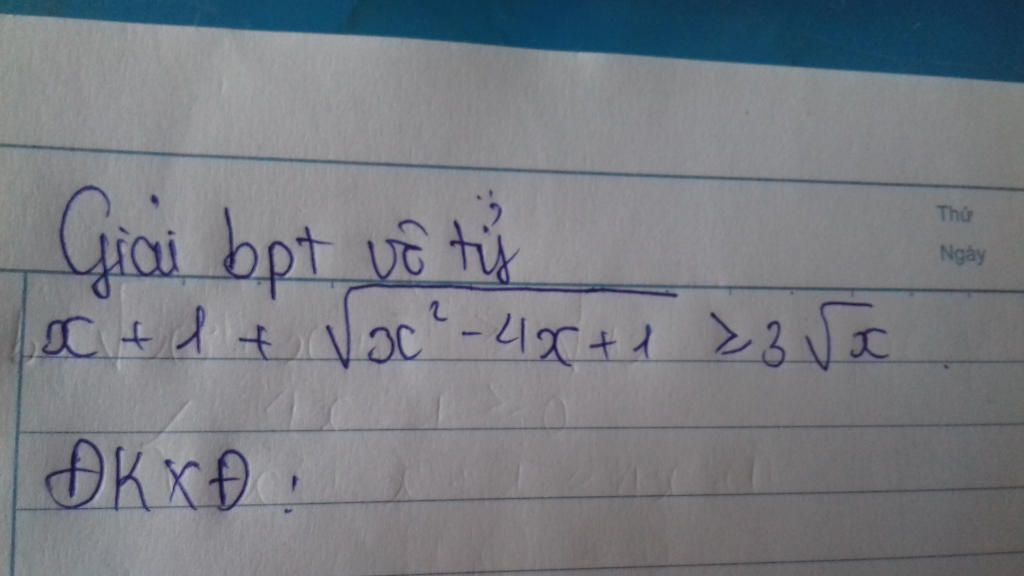 Giải bpt vô tỷ
Thứ
Ngày
x + 1 + √x² - 4x + 1 ≥ 3√x
ĐKXĐ: